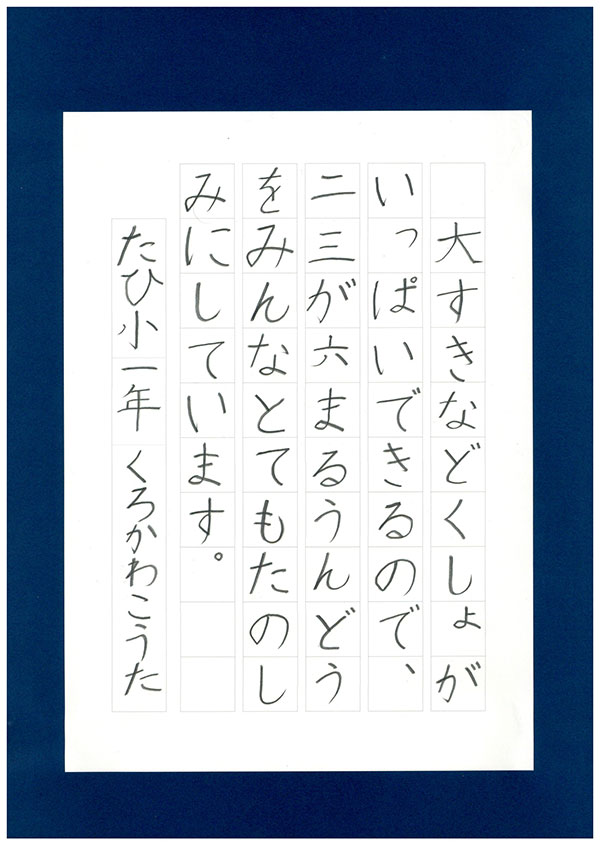 大すきなどくしょが
いっぱいできるので、
二三が六まるうんどう
をみんなとてもたのし
みにしています。
たひ小一年 くろかわこうた